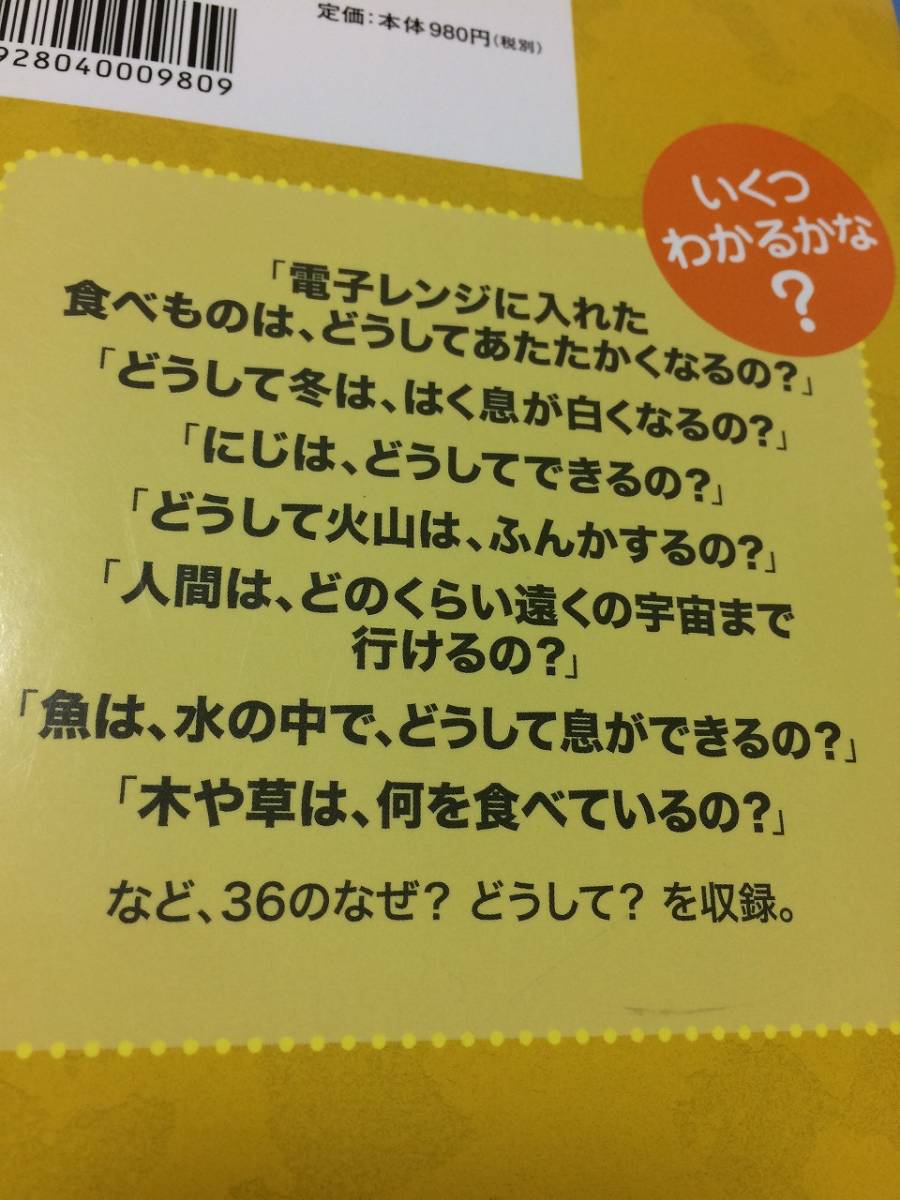 定価:本体980円(税別)
928040009809
いくつ
わかるかな
?
「電子レンジに入れた
食べものは、どうしてあたたかくなるの?」
「どうして冬は、はく息が白くなるの?」
「にじは、どうしてできるの?」
「どうして火山は、ふんかするの?」
「人間は、どのくらい遠くの宇宙まで
行けるの?」
「魚は、水の中で、どうして息ができるの?」
「木や草は、何を食べているの?」
など、36のなぜ? どうして? を収録。